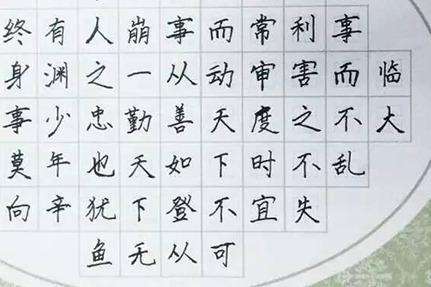 终有人崩事而常利事
身渊之一从动审害而临
事少忠勤善天度之不大
莫年也天如下时不乱
向辛犹下登不宜失
鱼无从可